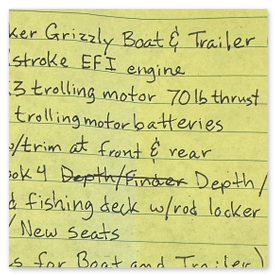 ker Grizzly Boat & Trailer
stroke EFI engine
3 trolling motor 70 lb thrust
trolling motor batteries
w/trim at front & rear
ook 4 Depth/Finder Depth/
d fishing deck w/rod locker
/ New seats
s for Boat and Trailer)